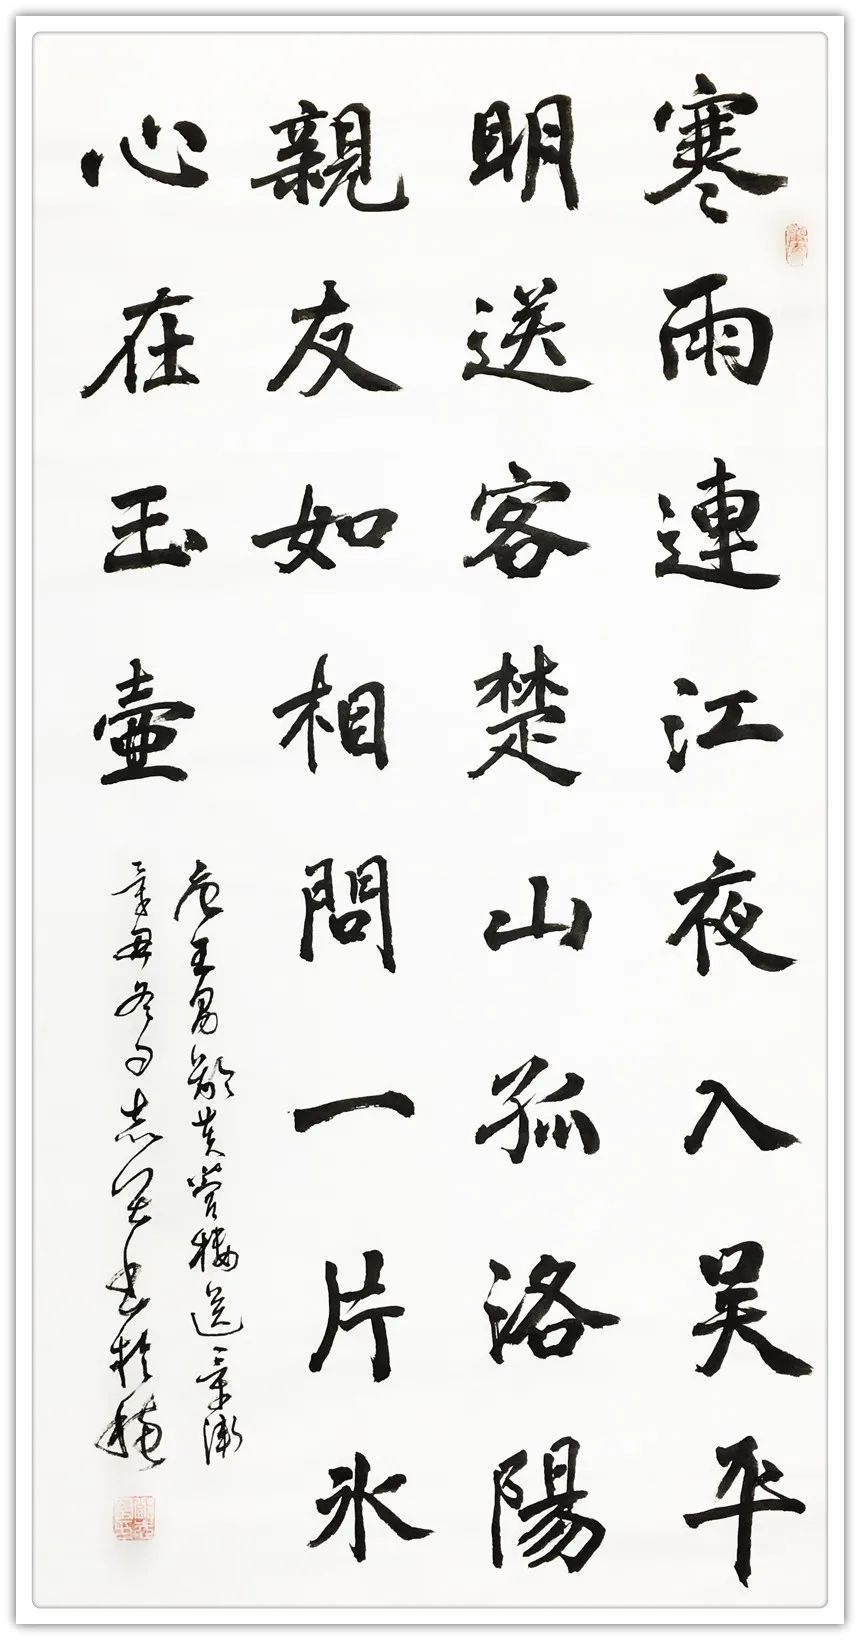 寒雨連江夜入吴平
明送客楚山孤洛陽
親友如相問一片冰
心在玉壺
唐王昌齡芙蓉樓送辛漸
辛丑冬月志書於